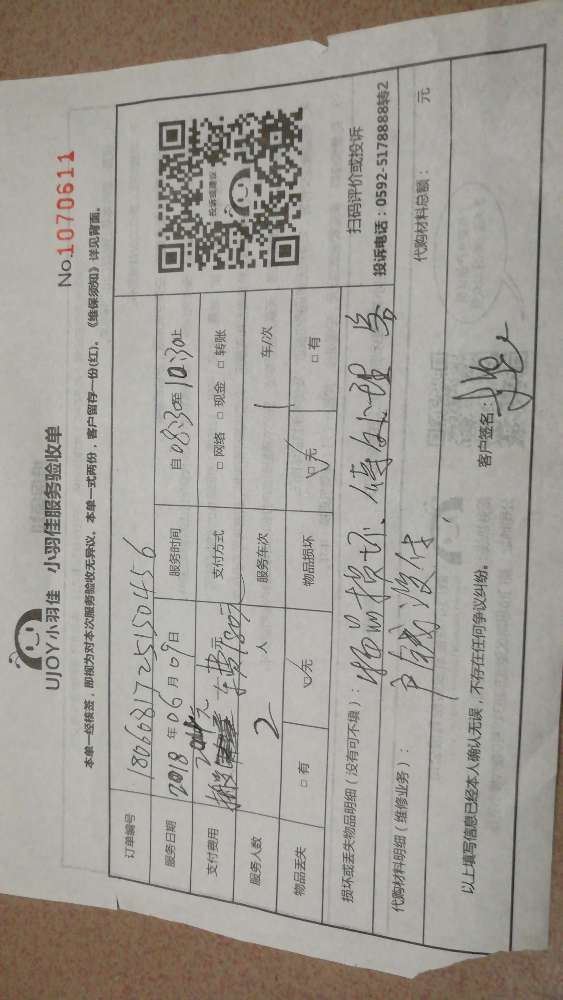 UJOY小羽佳 小羽佳服务验收单
No.1070611
本单一经核签,即视为对本次服务验收无异议。本单一式两份,客户留存一份(红)。《维保须知》详见背面。
订单编号 180668725150456
服务日期 2018 年 06 月 09 日 服务时间 自 08:30 至 10:30 止
支付费用 元 车费180元 支付方式 □ 网络 □ 现金 □ 转账
服务人数 2 人 服务车次 1 车/次
物品丢失 □ 有 □ 无 物品损坏 □ 无 □ 有
投诉或建议
扫码评价或投诉
投诉电话:0592-5178888转2
损坏或丢失物品明细(没有可不填): 物品损坏、待处理
代购材料明细(维修业务): 没付
代购材料总额: 元
以上填写信息已经本人确认无误,不存在任何争议纠纷。
客户签名: